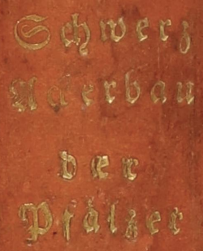 Schwerz
Ackerbau
der
Pfälzer